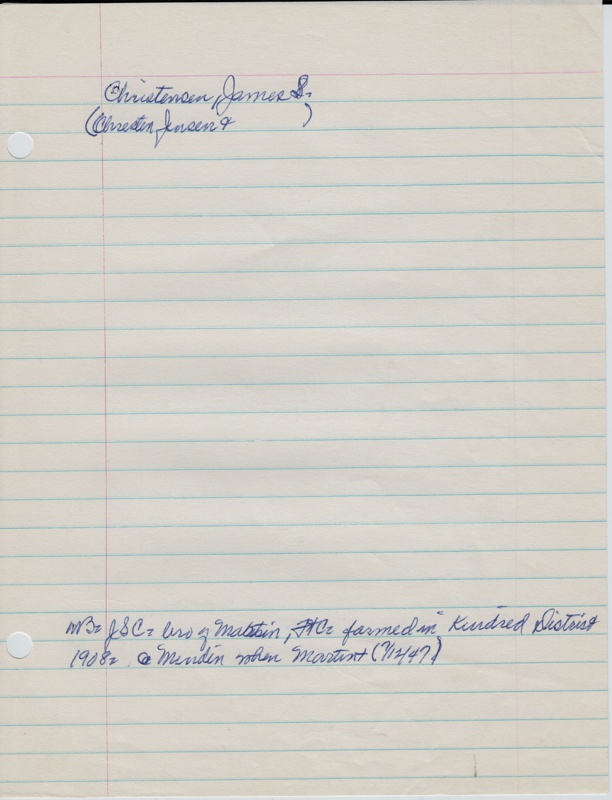 Christensen, James S.
(Chresten Jensen & )
NB= JSC= bro of Martin, farmed in Kindred District
1908= @ Minden when Martin + (7/12/47)